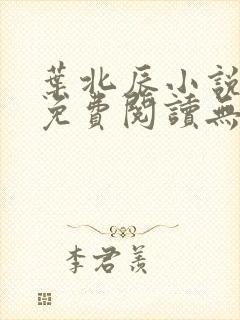 葉北辰小說
免費閱讀無
李君羨